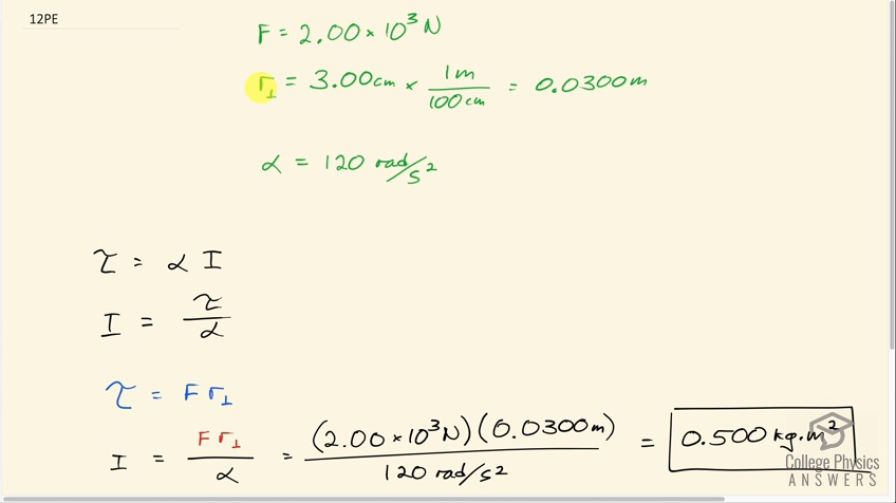 12PE
F = 2.00 × 10³ N
r⊥ = 3.00 cm × 1 m / 100 cm = 0.0300 m
α = 120 rad/s²
τ = α I
I = τ / α
τ = F r⊥
I = F r⊥ / α = (2.00 × 10³ N)(0.0300 m) / 120 rad/s² = 0.500 kg·m²
College Physics
ANSWERS